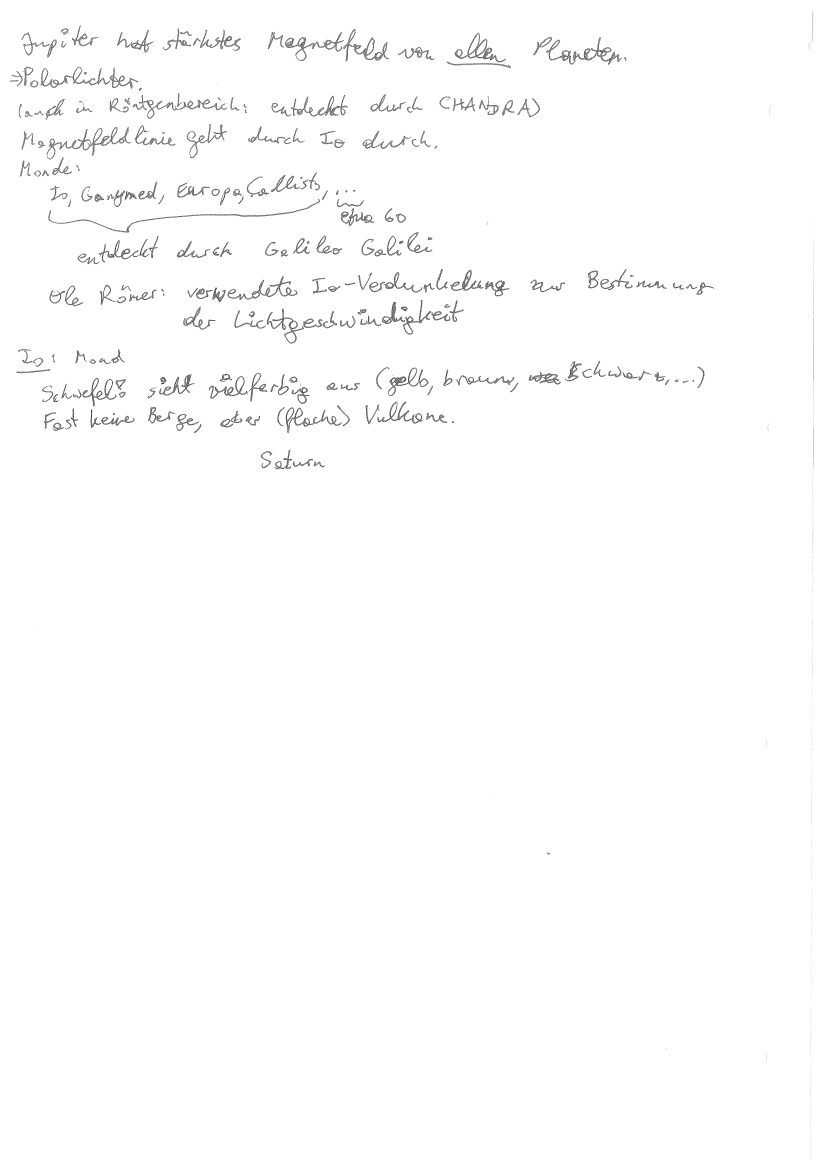 Jupiter hat stärkstes Magnetfeld von allen Planeten.
⇒Polarlichter.
(auch in Röntgenbereich: entdeckt durch CHANDRA)
Magnetfeldlinie geht durch Io durch.
Monde:
Io, Ganymed, Europa, Callisto, ...
etwa 60
entdeckt durch Galileo Galilei
Ole Römer: verwendete Io-Verdunkelung zur Bestimmung
der Lichtgeschwindigkeit
Io: Mond
Schwefel: sieht vielfarbig aus (gelb, braun, schwarz,...)
Fast keine Berge, aber (flache) Vulkane.
Saturn